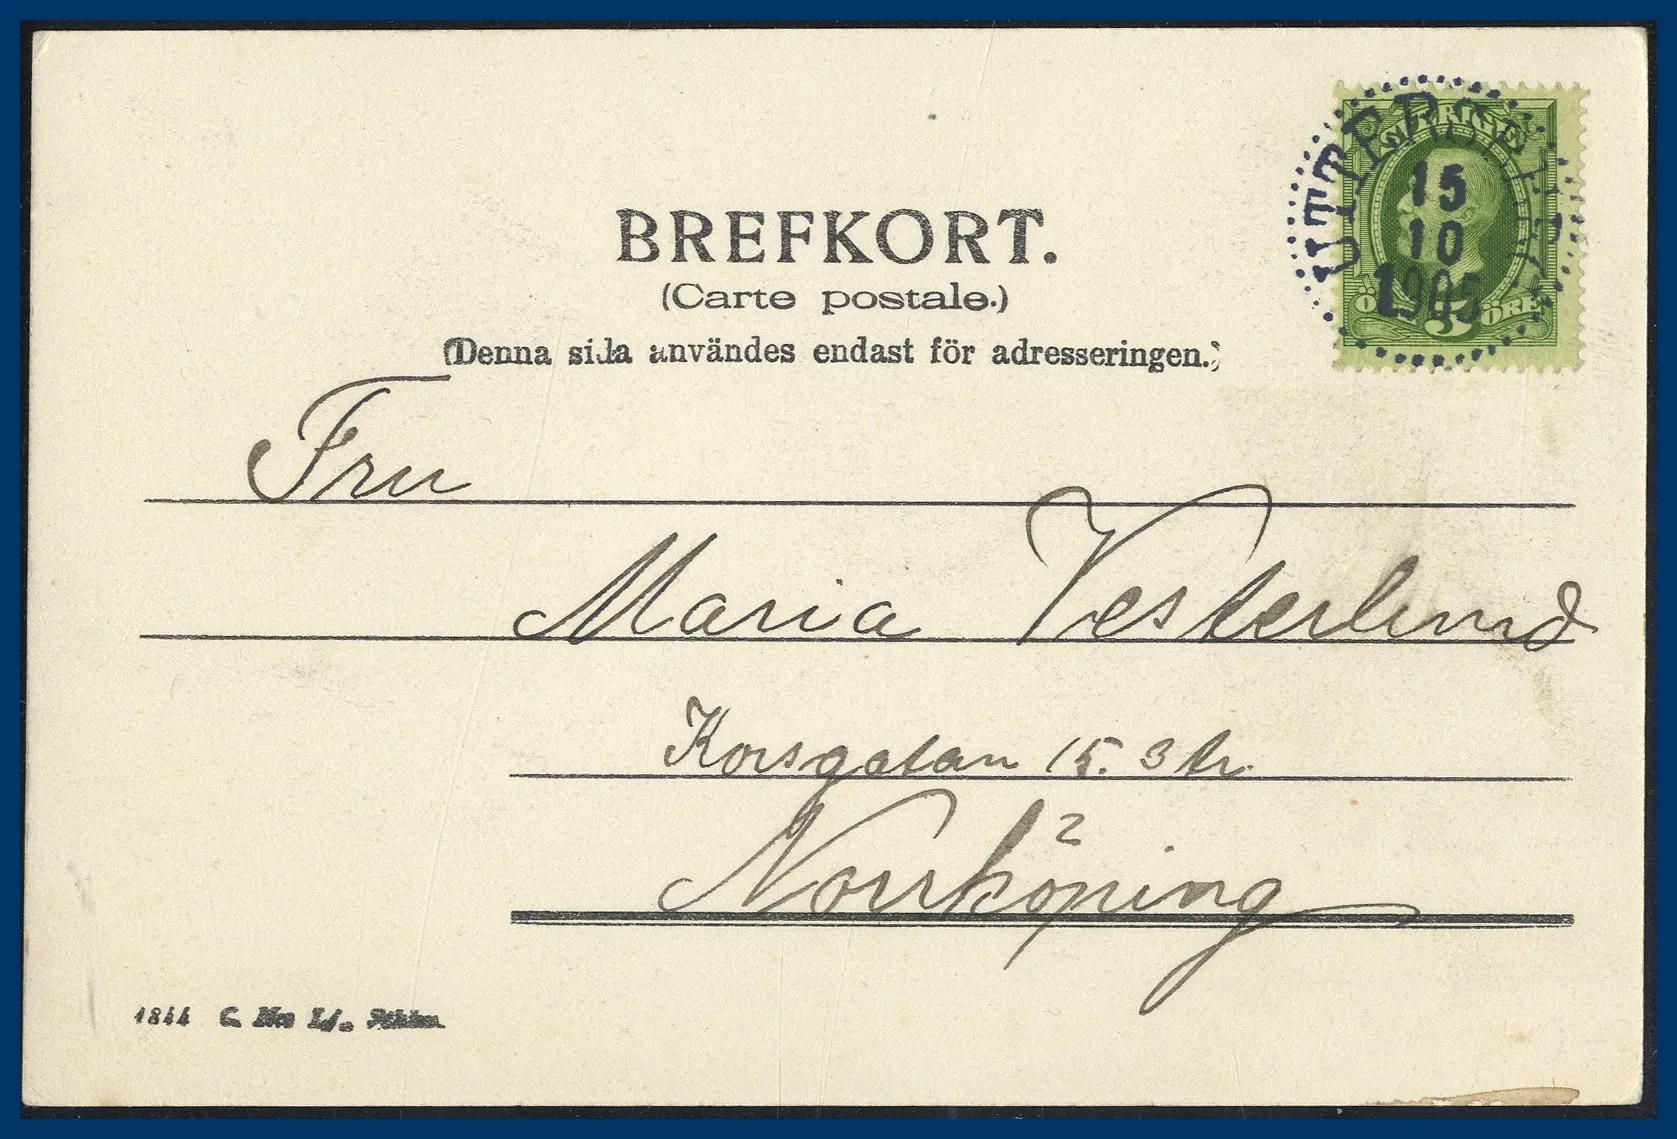 BREFKORT.
(Carte postale.)
(Denna sida användes endast för adresseringen.)
SVERIGE
15
10
1905
5
ÖRE
Fru
Maria Vesterlund
Korsgatan 15. 3 tr.
2
Norrköping
1844